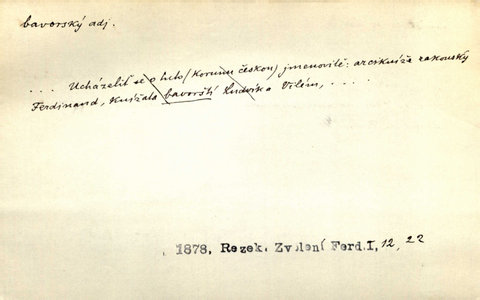 bavorský adj.
... Ucházeliť se o tuto (korunu českou) jmenovitě: arcikníže rakouský
Ferdinand, knížata bavorští Ludvík a Vilém, ....
1878, Rezek. Zvolení Ferd. I, 12, 22